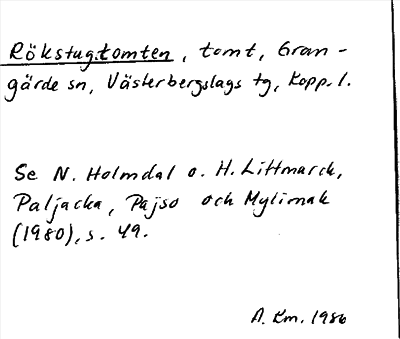 Rökstugtomten, tomt, Gran-
gärde sn, Västerbergslags tg, Kopp. l.
Se N. Holmdal o. H. Littmarck,
Paljacka, Pajso och Mylimak
(1980), s. 49.
A. Km. 1986